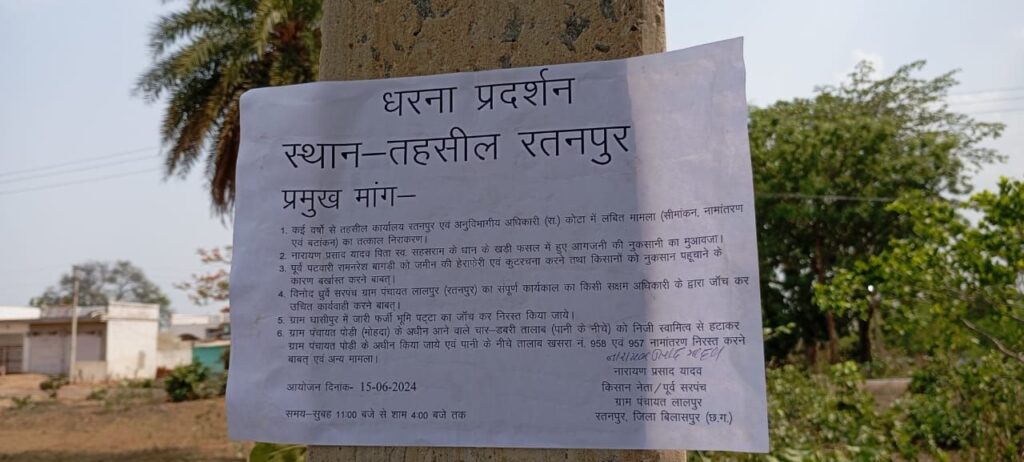 धरना प्रदर्शन
स्थान–तहसील रतनपुर
प्रमुख मांग–
1. कई वर्षो से तहसील कार्यालय रतनपुर एवं अनुविभागीय अधिकारी (रा.) कोटा में लंबित मामला (सीमांकन, नामांतरण
एवं बटांकन) का तत्काल निराकरण।
2. नारायण प्रसाद यादव पिता स्व. सहसराम के धान के खडी फसल में हुए आगजनी की नुकसानी का मुआवजा।
3. पूर्व पटवारी रामनरेश बागडी को जमीन की हेराफेरी एवं कुटरचना करने तथा किसानों को नुकसान पहूचाने के
कारण बर्खास्त करने बाबत्।
4. विनोद धुर्वे सरपंच ग्राम पंचायत लालपुर (रतनपुर) का संपूर्ण कार्यकाल का किसी सक्षम अधिकारी के द्वारा जॉंच कर
उचित कार्यवाही करने बाबत्।
5. ग्राम घासीपुर में जारी फर्जी भूमि पट्टा का जॉंच कर निरस्त किया जाये।
6. ग्राम पंचायत पोड़ी (मोहदा) के अधीन आने वाले चार–डबरी तालाब (पानी के नीचे) को निजी स्वामित्व से हटाकर
ग्राम पंचायत पोडी के अधीन किया जाये एवं पानी के नीचे तालाब खसरा नं. 958 एवं 957 नामांतरण निरस्त करने
बाबत् एवं अन्य मामला।
नारायण प्रसाद यादव
नारायण प्रसाद यादव
आयोजन दिनांक- 15-06-2024
किसान नेता/पूर्व सरपंच
ग्राम पंचायत लालपुर
समय–सुबह 11:00 बजे से शाम 4:00 बजे तक
रतनपुर, जिला बिलासपुर (छ.ग.)